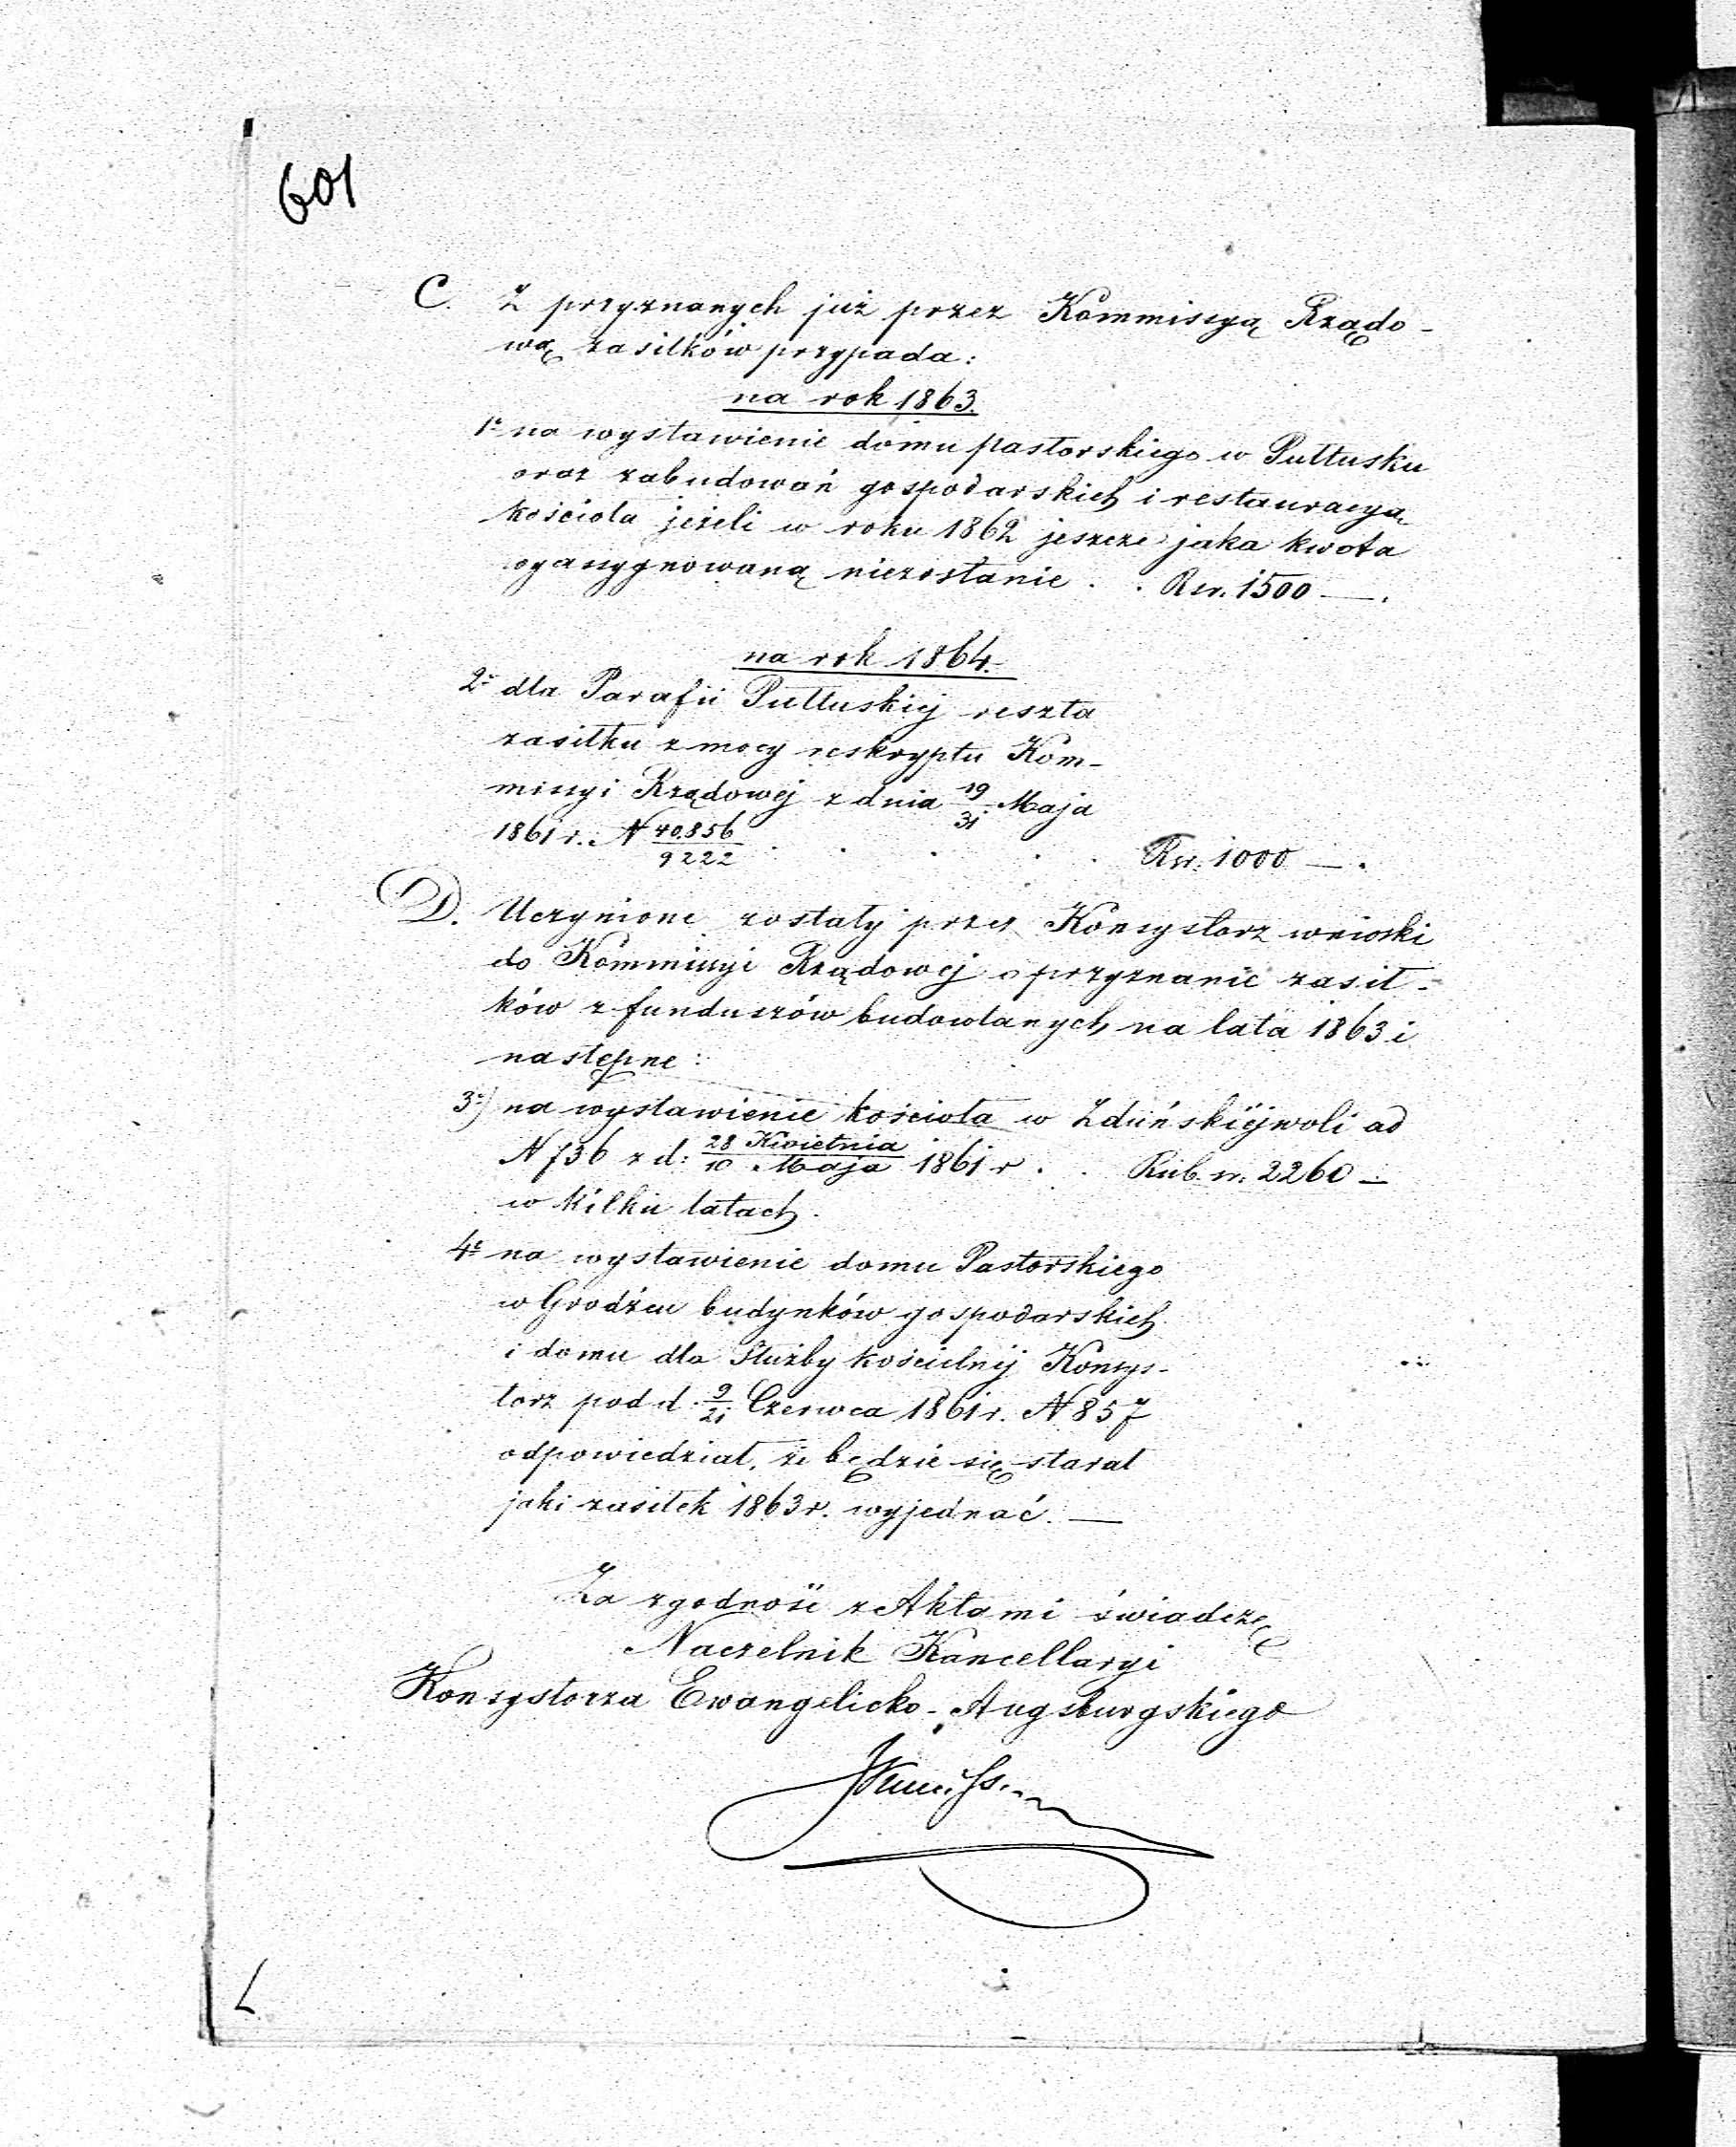 601
C. Z przyznanych już przez Kommissyą Rządo-
wą zasiłków przypada:
na rok 1863.
1º na wystawienie domu pastorskiego w Pułtusku
oraz zabudowań gospodarskich i restauracyą
kościoła jeżeli w roku 1862 jeszcze jaka kwota
niezostanie . . Rsr. 1500 —.
na rok 1864.
2º dla Parafii Pułtuskiej reszta
zasiłku z mocy reskryptu Kom-
missyi Rządowej z dnia 19/31 Maja
1861 r. N 40.856/9222 . . . . . Rsr. 1000 —.
D. Uczynione zostały przez Konsystorz wnioski
do Kommissyi Rządowej o przyznanie zasił-
ków z funduszów budowlanych na lata 1863 i
następne:
3º) na wystawienie kościoła w Zduńskiejwoli ad
N 736 z d: 28 Kwietnia/10 Maja 1861 r . . Rub. sr. 2260 —
w kilku latach.
4º na wystawienie domu Pastorskiego
w Grodźcu budynków gospodarskich
i domu dla Służby kościelnej Konsys-
torz pod d. 9/21 Czerwca 1861 r. N 857
odpowiedział, że będzie się starał
jaki zasiłek 1863 r. wyjednać. —
Za zgodność z Aktami świadczę
Naczelnik Kancellaryi
Konsystorza Ewangelicko-Augsburgskiego